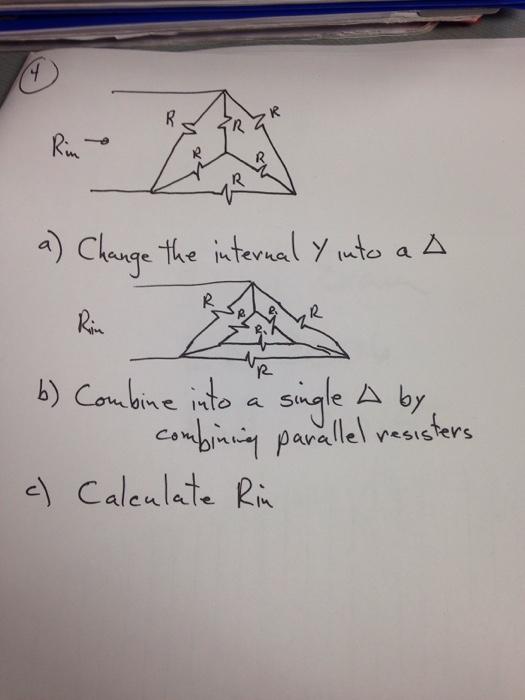 4
R R R
Rin →
R R
R
a) Change the internal Y into a Δ
R R
Rin R₁ R₁
R₁
R
b) Combine into a single Δ by
combining parallel resisters
c) Calculate Rin